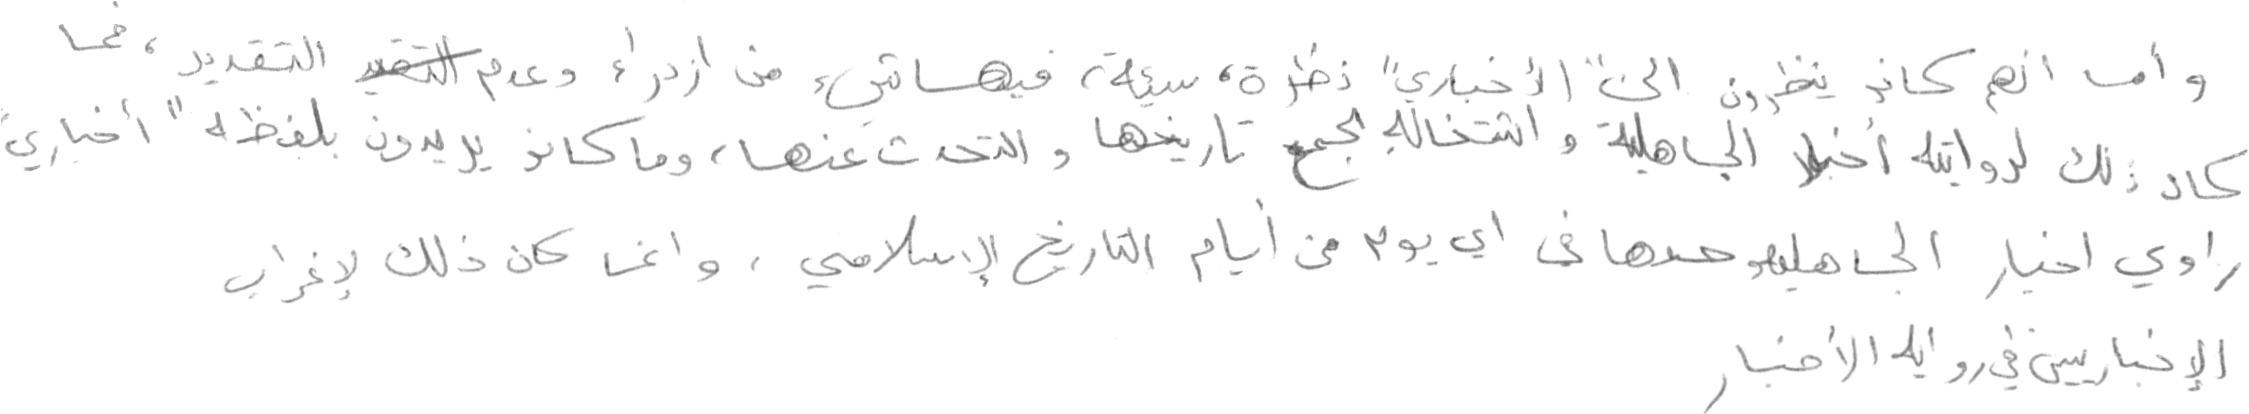 وأما انهم كانوا ينظرون الى "الأخباري" نظرة، سيئة، فيها شيء من ازدراء وعدم التقدير، فما
كان ذلك لروايته أخبار الجاهلية واشتغاله بجمع تاريخها والتحدث عنها، وما كانوا يريدون بلفظه "أخباري"
راوي اخبار الجاهليه وحدها في اي يوم من أيام التاريخ الإسلامي، وانما كان ذلك لإغراب
الإخباريين في روايه الأخبار